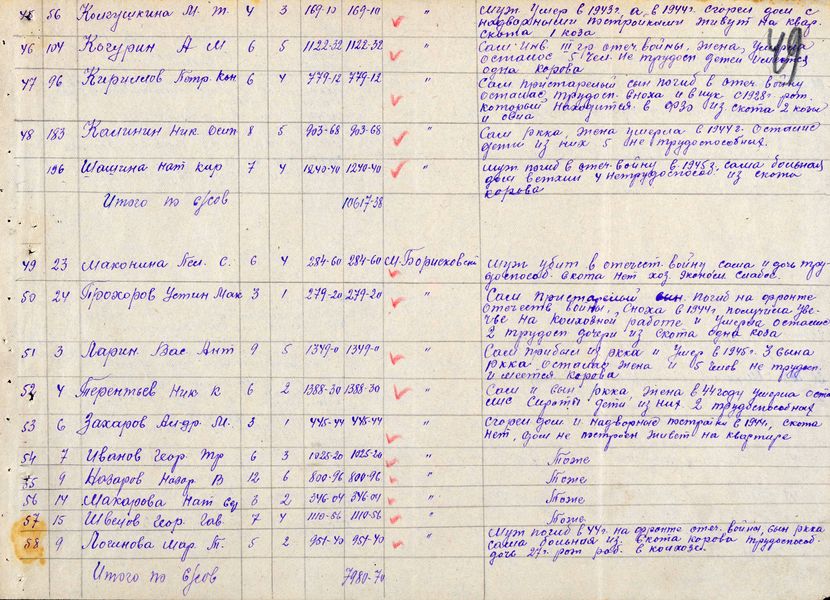 45 56 Колгушкина М. Т. 4 3 169-10 169-10 "
муж умер в 1943г. а в 1944г. сгорел дом с
надворными постройками живут на квар.
скота 1 коза
49
46 104 Кочурин А М. 6 5 1122-32 1122-32 "
Сам Инв. III гр отеч. войны, жена умерла
осталось 5 чел. не трудосп детей имеется
одна корова
47 96 Кириллов Петр. Кон 6 4 779-12 779-12 "
Сам пристарелый сын погиб в отеч. войну
осталась трудосп. сноха и внук с 1928г. рож.
который находится в ФЗО из скота 2 козы
и овца
48 183 Калинин Ник Осип 8 5 903-68 903-68 "
Сам ркка, жена умерла в 1944г. остались
дети из них 5 не трудоспособных.
196 Шашина Нат Кир 7 4 1240-40 1240-40 "
муж погиб в отеч. войну в 1945г. сама больная
дом ветхий 4 нетрудоспособ. из скота
корова
Итого по с/сов 10617-38
49 23 Маконина Пел. С. 6 4 284-60 284-60 М. Борисковский
муж убит в отечест. войну сама и дочь тру-
доспособ. скота нет хоз. эконом слабое.
50 24 Прохоров Устин Мак 3 1 279-20 279-20 "
Сам пристарелый сын погиб на фронте
Отечеств войны, Сноха в 1944г. получила уве-
чье на колхозной работе и умерла осталис
2 трудосп дочери из скота одна коза
51 3 Ларин Вас Ант 9 5 1349-0 1349-0 "
Сам прибыл из ркка и умер в 1945г. 3 сына
ркка осталась жена и 5 членов не трудосп.
имеется корова
52 4 Терентьев Ник К 6 2 1388-30 1388-30 "
Сам и сын ркка жена в 44 году умерла оста
лис сироты дети из них 2 трудоспособных
53 6 Захаров Андр. М. 3 1 445-44 445-44 "
Сгорел дом и надворные постройки в 1944г., скота
нет, дом не построен живет на квартире
54 7 Иванов Геор. Тр 6 3 1025-20 1025-20 "
Тоже
55 9 Назаров Назар В 12 6 800-96 800-96 "
Тоже
56 14 Макарова Нат 3 2 346-04 346-04 "
Тоже
57 15 Швецов Геор. Гав. 7 4 1110-56 1110-56 "
Тоже
58 9 Логинова Мар. Т. 5 2 951-40 951-40 "
Муж погиб в 44г. на фронте отеч. войны, сын ркка
сама больная из скота корова трудоспособ.
дочь 27г. рож раб. в колхозе.
Итого по с/сов 7980-70